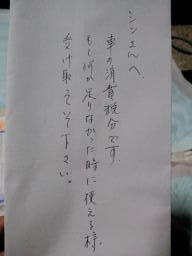 シンさんへ
車の消費税分です。
もし何か足りなかった時に使える様、
受け取って下さい。